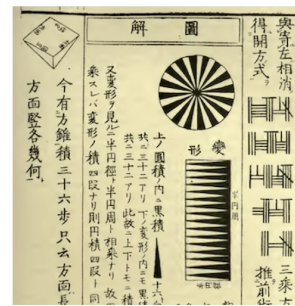 與寄左相消
得開方式
三乗方
推前術
圖解
變形
半円周
上ノ圓積ノ内ニ黒積
十六
共ニ三十二アリ下ノ変形ノ内ニモ黒積
共ニ三十二アリ此故ニ上下トモニ積
又変形ヲ見ルニ半円径ト半円周ト相乗ナリ故
乗スレバ変形ノ積四段ナリ則円積四段ト同
今有方錐積三十六歩只云方面長
方面竪各幾何